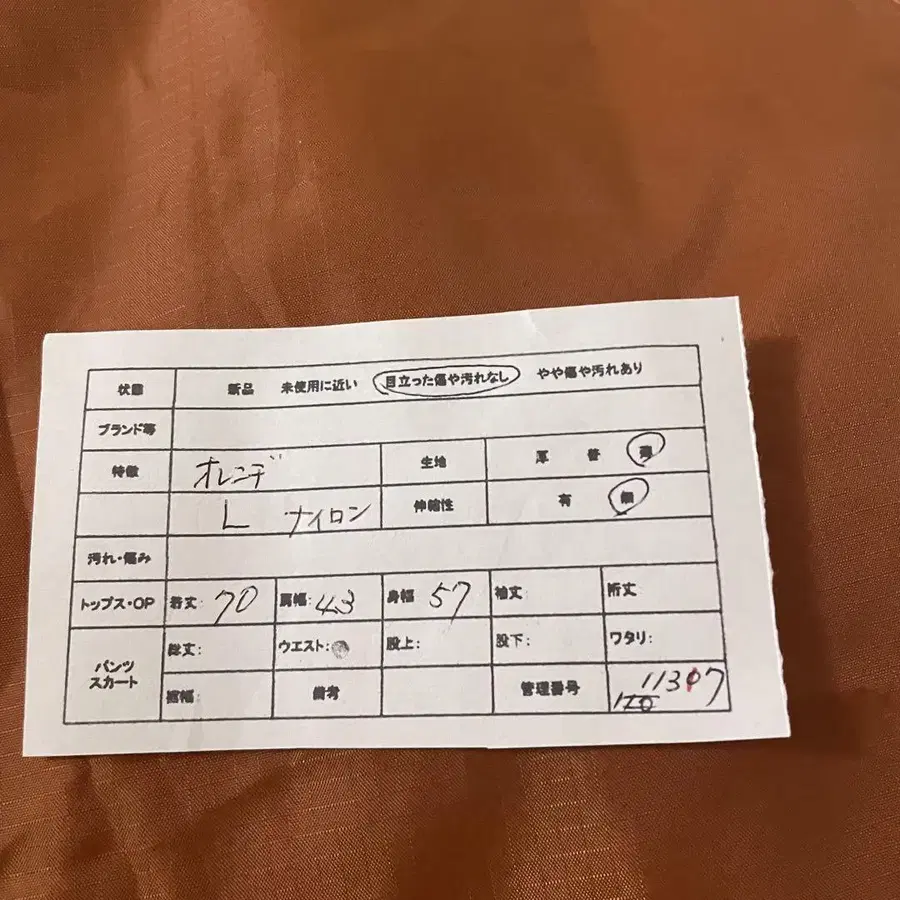 状態 新品 未使用に近い 目立った傷や汚れなし やや傷や汚れあり
ブランド等
特徴 オレンヂ 生地 厚 普 薄
L ナイロン 伸縮性 有 無
汚れ・傷み
トップス・OP 着丈: 70 肩幅: 43 身幅 57 袖丈: 裄丈
パンツ スカート 総丈: ウエスト: 股上: 股下: ワタリ:
裾幅: 備考 管理番号 11307